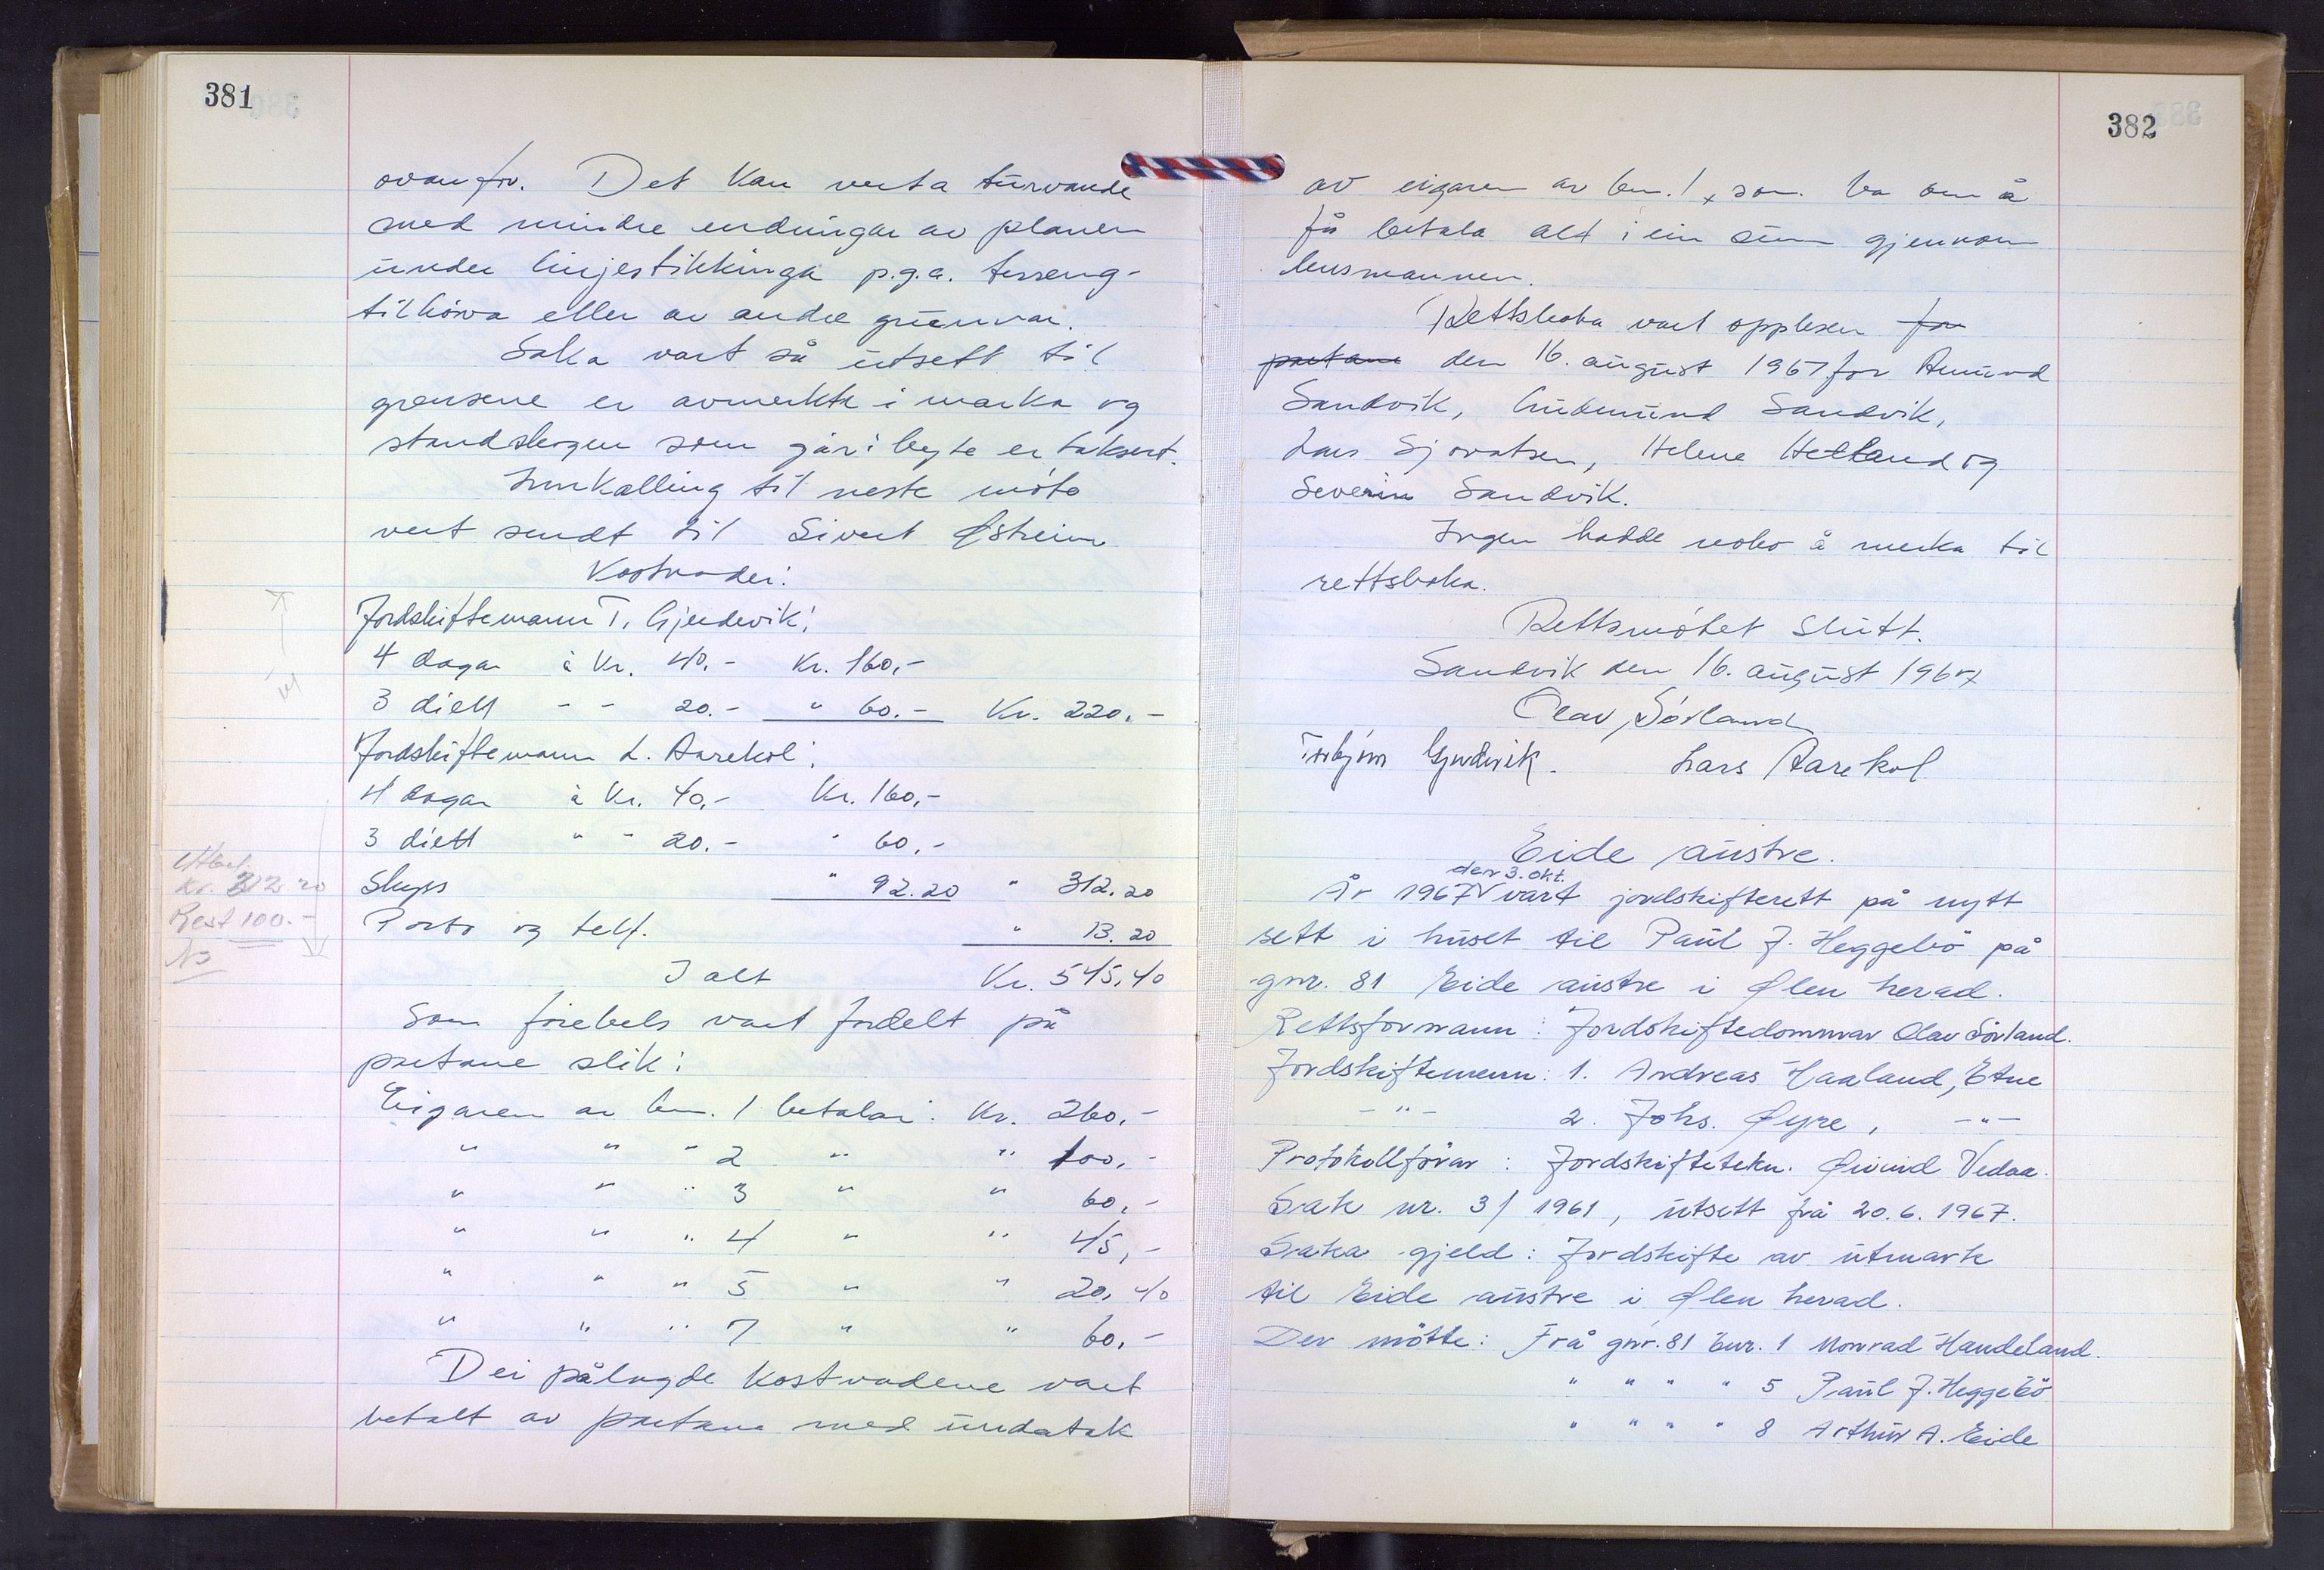 381
ovanfor. Det kan verta turvande
med mindre endringar av planen
under linjestikkinga p.g.a. terreng-
tilhöva eller av andre grunnar.
Saka vart så utsett til
grensene er avmerkte i marka og
standskogen som går i byte er taksert.
Innkalling til neste möte
vert sendt til Sivert Østheim
Kostnader:
Jordskiftemann T. Gjerdevik:
4 dagar à Kr. 40.- Kr. 160,-
3 diett - - 20.- " 60.- Kr. 220.-
Jordskiftemann L. Aarekol:
4 dagar à Kr. 40,- Kr. 160,-
3 diett " - 20.- " 60,-
Utbet.
Kr. 212 20
Skyss " 92.20 " 312.20
Rest 100.-
Porto og telf. " 13.20
I alt Kr. 545,40
Som förebels vart fordelt på
partane slik:
Eigaren av bnr. 1 betalar: Kr. 260,-
" " " 2 " " 100,-
" " " 3 " " 60,-
" " " 4 " " 45,-
" " " 5 " " 20,40
" " " 7 " " 60,-
Dei pålagde kostnadene vart
betalt av partane med undatak
382
av eigaren av bnr. 1, som ba om å
få betala alt i ein sum gjennom
lensmannen.
Rettsboka vart opplesen for
partane den 16. august 1967 for Amund
Sandvik, Gudmund Sandvik,
Lars Sjovatsen, Helene Hetland og
Severin Sandvik.
Ingen hadde noko å merka til
rettsboka.
Rettsmötet slutt.
Sandvik den 16. august 1967
Olav Sörland
Torbjörn Gjerdevik. Lars Aarekol
Eide austre.
den 3. okt.
År 1967 vart jordskifterett på nytt
sett i huset til Paul J. Heggebö på
gnr. 81 Eide austre i Ølen herad.
Rettsformann: Jordskiftedommar Olav Sörland.
Jordskiftemenn: 1. Andreas Haaland, Etne
- " - 2. Johs. Øyre, - " -
Protokollförar: Jordskiftetekn. Øivind Vedaa.
Sak nr. 3/1961, utsett frå 20.6.1967.
Saka gjeld: Jordskifte av utmark
til Eide austre i Ølen herad.
Der mötte: Frå gnr. 81 bnr. 1 Monrad Handeland.
" " " " 5 Paul J. Heggebö
" " " " 8 Arthur A. Eide